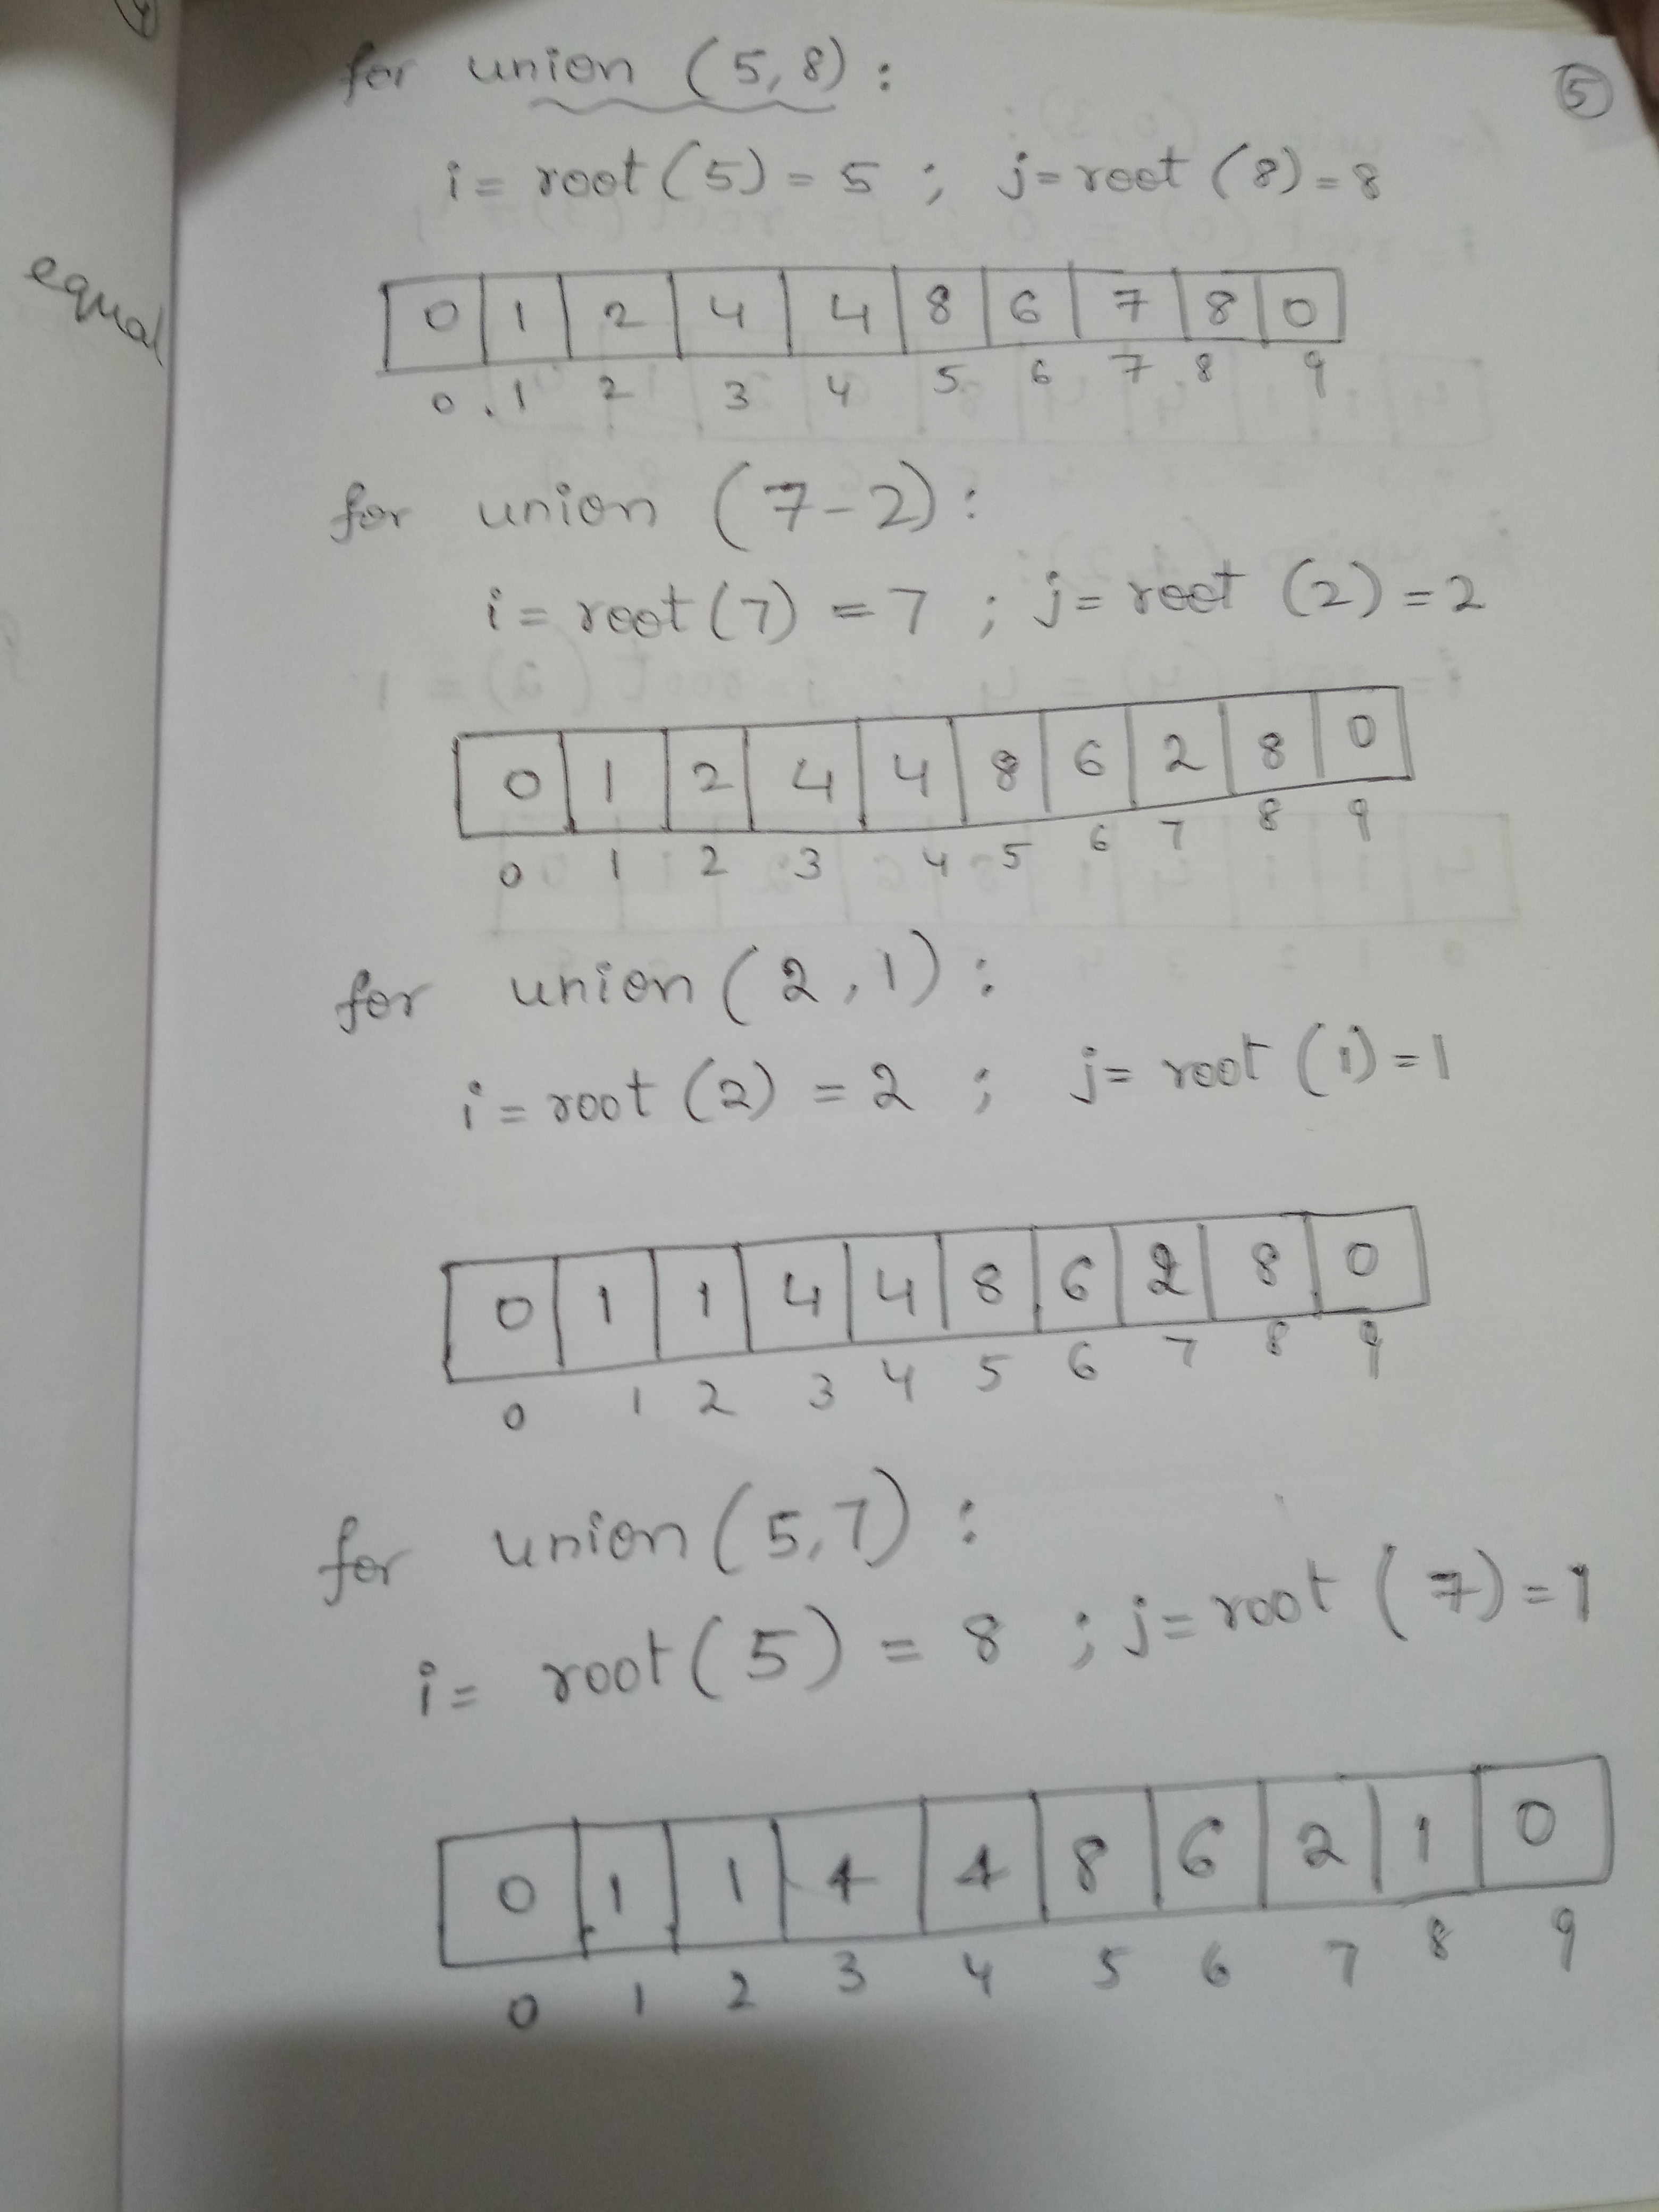 5
for union (5,8) :
i = root (5) = 5 ; j = root (8) = 8
equal
0 1 2 4 4 8 6 7 8 0
0 . 1 2 3 4 5 6 7 8 9
for union (7-2) :
i = root (7) = 7 ; j = root (2) = 2
0 1 2 4 4 8 6 2 8 0
0 1 2 3 4 5 6 7 8 9
for union (2,1) :
i = root (2) = 2 ; j = root (1) = 1
0 1 1 4 4 8 6 2 8 0
0 1 2 3 4 5 6 7 8 9
for union (5,7) :
i = root (5) = 8 ; j = root (7) = 1
0 1 1 4 4 8 6 2 1 0
0 1 2 3 4 5 6 7 8 9